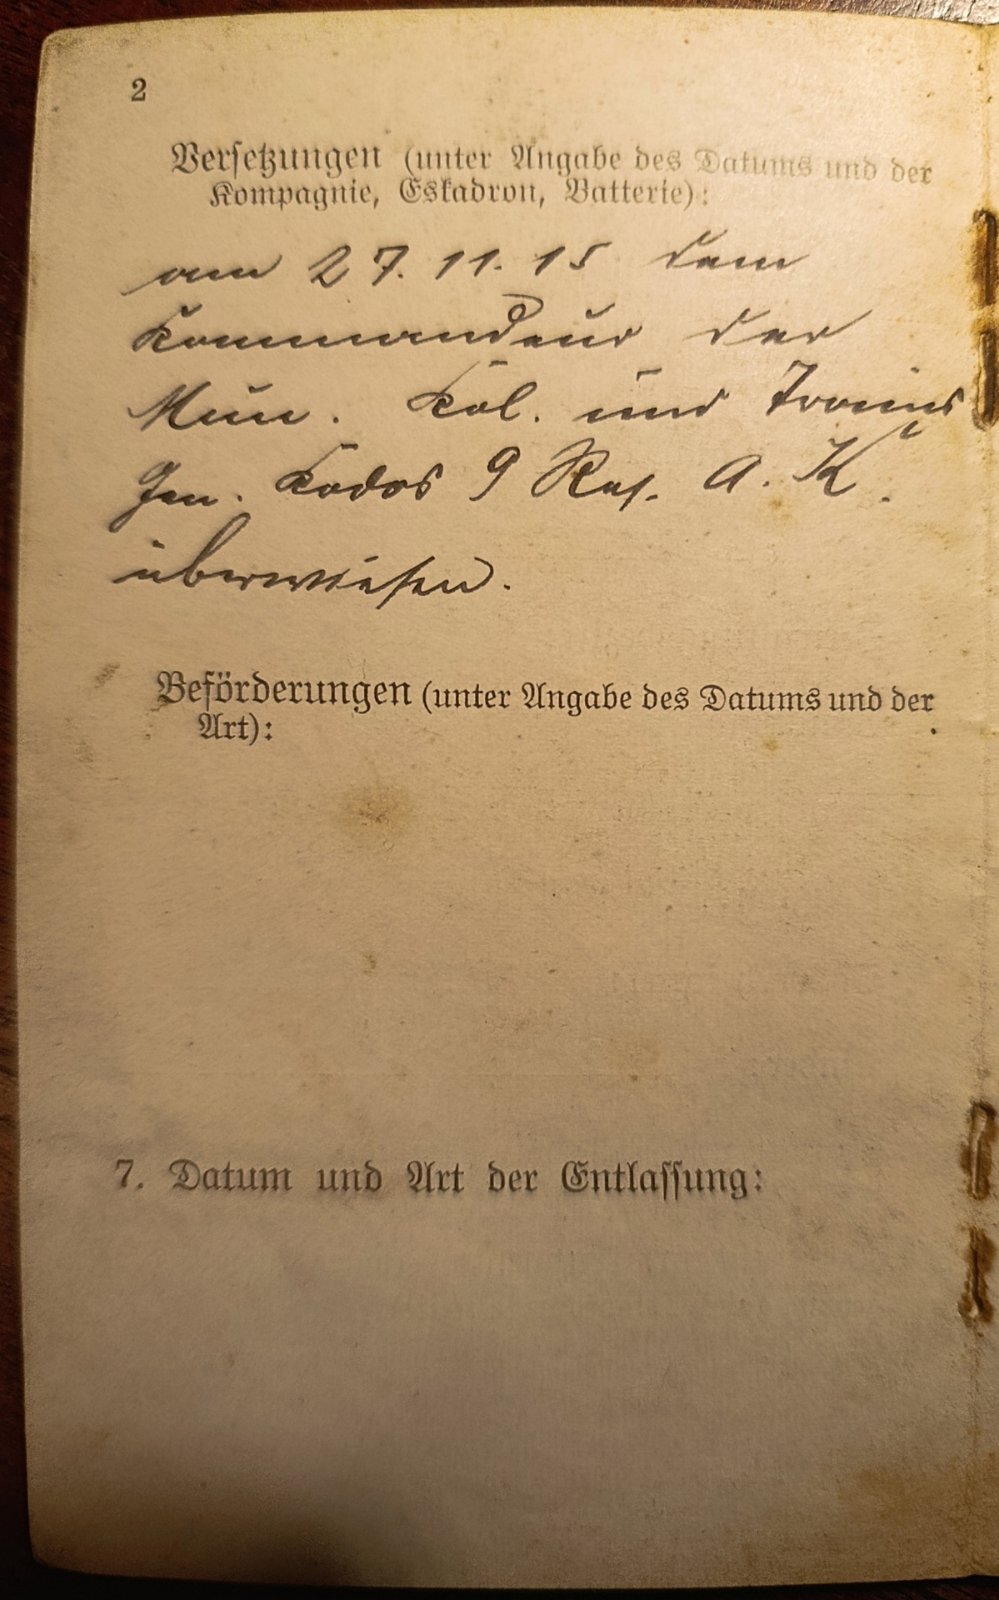 2
Versetzungen (unter Angabe des Datums und der
Kompagnie, Eskadron, Batterie):
am 27. 11. 15 dem
Kommandeur der
Mun. Kol. und Trains
Gen. Kodos 9 Res. A. K.
überwiesen.
Beförderungen (unter Angabe des Datums und der
Art):
7. Datum und Art der Entlassung: